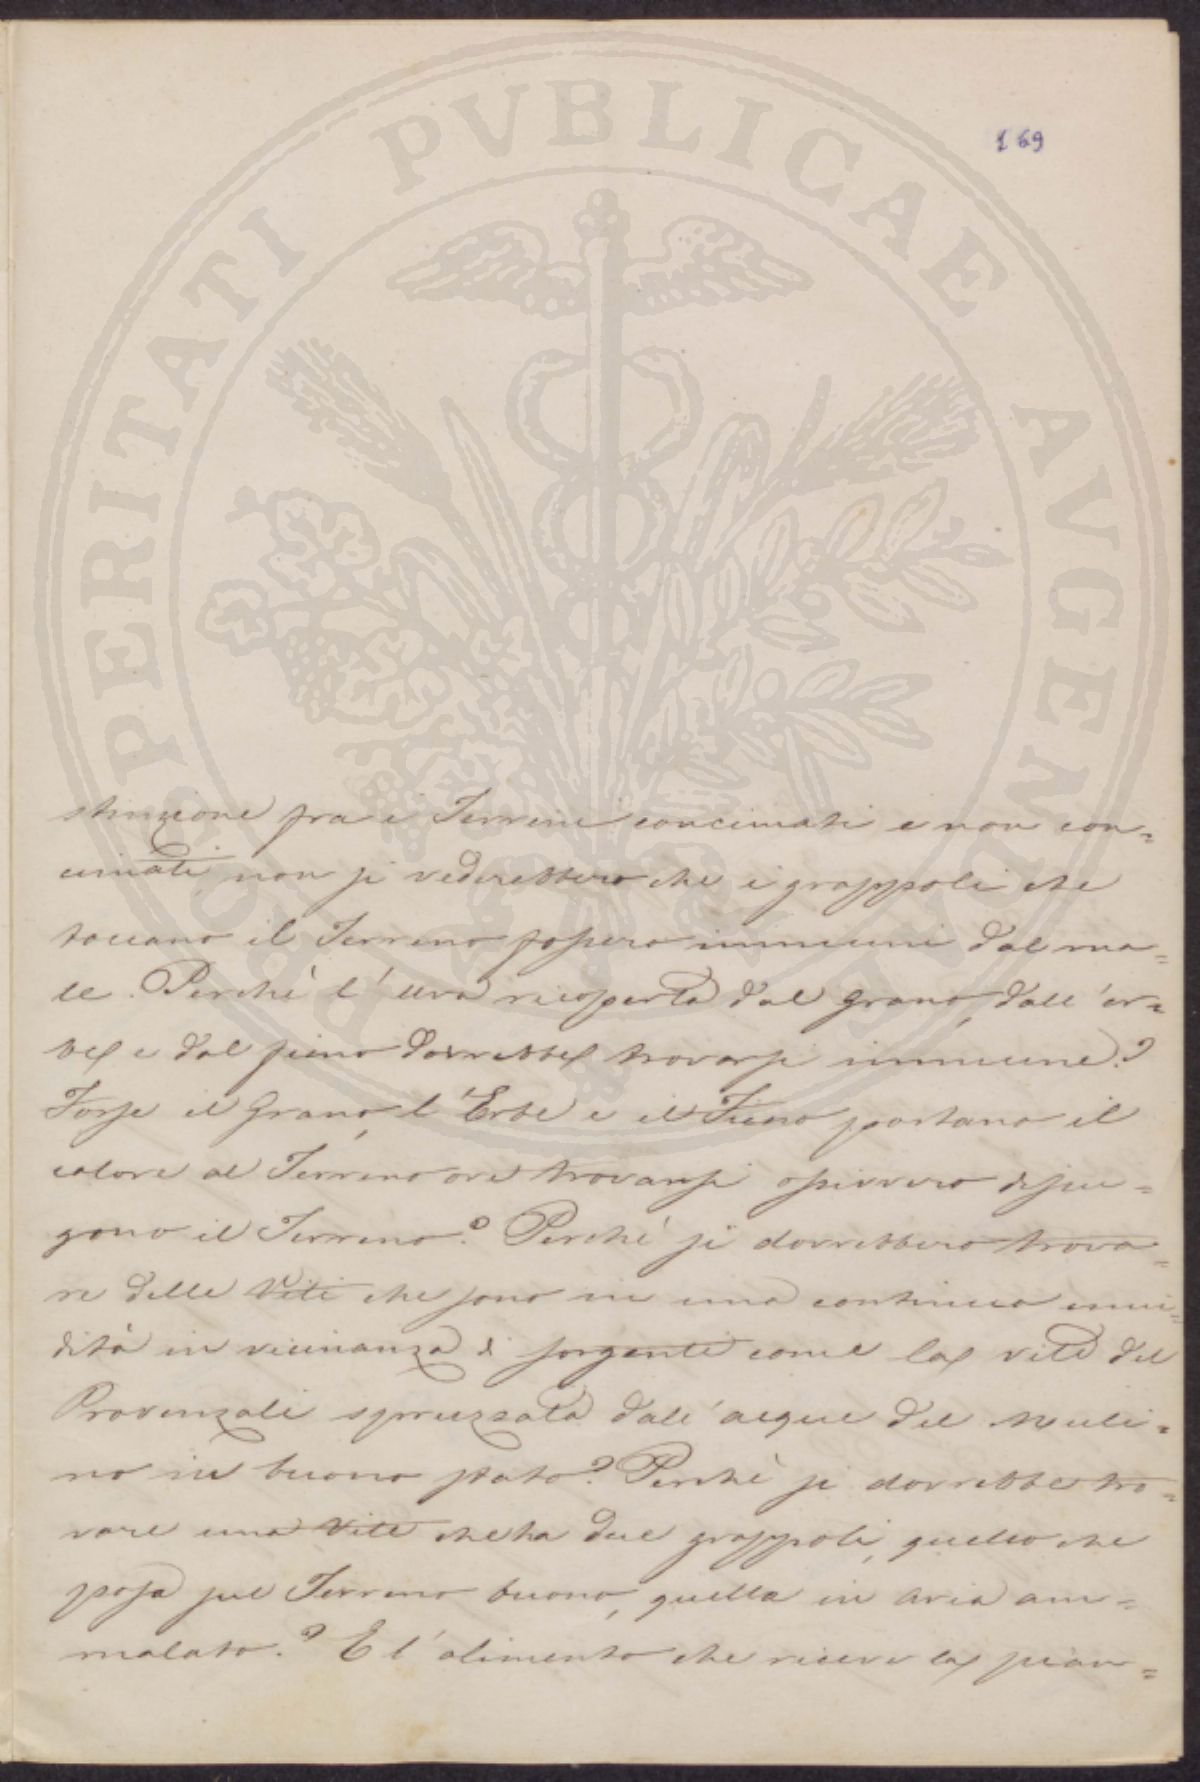 169
PROSPERITATI PVBLICAE AVGENDAE
stinzione fra i Terreni concimati e non con=
cimati, non si vederebbero che i grappoli che
toccano il Terreno fossero immuni dal ma=
le. Perchè l'uva ricoperta dal grano, dall'er=
be, e dal fieno dovrebbe trovarsi immune?
Forse il Grano, l'Erbe e il Fieno portano il
calore al Terreno ove trovansi ossivvero
gono il Terreno? Perchè si dovrebbero trova=
re delle Viti che sono in una continua umi=
dità in vicinanza di sorgenti come la vite del
Provenzali spruzzata dall'acque del Muli=
no in buono stato? Perchè si dovrebbe tro=
vare una Vite che ha due grappoli, quello che
posa sul Terreno buono, quello in aria am=
malato? E l'alimento che riceve la pian=